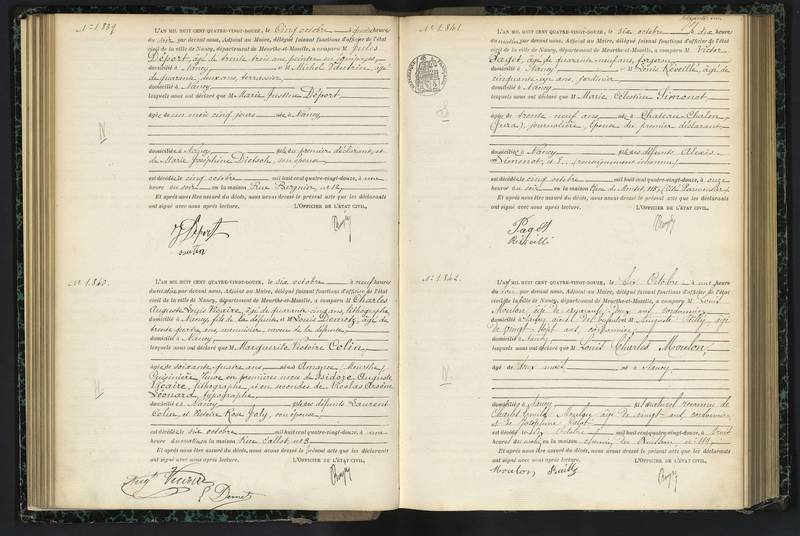 N° 1.839.
L'AN MIL HUIT CENT QUATRE-VINGT-DOUZE, le Cinq octobre à heures
du soir, par devant nous, Adjoint au Maire, délégué faisant fonctions d'officier de l'état
civil de la ville de Nancy, département de Meurthe-et-Moselle, a comparu M. Jules
Déport, âgé de trente trois ans, peintre en équipages,
domicilié à Nancy et M. Michel Vautrin, âgé
de quarante deux ans, terrassier,
domicilié à Nancy,
lesquels nous ont déclaré que M Marie Justine Déport,
âgée de un mois cinq jours née à Nancy
domiciliée à Nancy fille du premier déclarant, et
de Marie Joséphine Dietsch, son épouse
est décédée le cinq octobre mil huit cent quatre-vingt-douze, à une
heure du soir en la maison Rue Bergnier, n° 12,
Et après nous être assuré du décès, nous avons dressé le présent acte que les déclarants
ont signé avec nous après lecture. L'OFFICIER DE L'ÉTAT CIVIL,
J Déport
N° 1.840.
L'AN MIL HUIT CENT QUATRE-VINGT-DOUZE, le six octobre à neuf heures
du matin, par devant nous, Adjoint au Maire, délégué faisant fonctions d'officier de l'état
civil de la ville de Nancy, département de Meurthe-et-Moselle, a comparu M. Charles
Auguste Louis Vicaire, âgé de quarante cinq ans, lithographe,
domicilié à Nancy, fils de la défunte et M. Louis Demetz, âgé de
trente quatre ans, menuisier, neveu de la défunte,
domicilié à Nancy,
lesquels nous ont déclaré que M Marguerite Victoire Colin,
âgée de soixante quatre ans née à Amance, Meurthe,
cuisinière, veuve en premières noces de Isidore Auguste
Vicaire, lithographe, et en secondes de Nicolas Arsène
Léonard, typographe,
domiciliée à Nancy fille des défunts Laurent
Colin et Victoire Rose Joly, son épouse
est décédée le six octobre mil huit cent quatre-vingt-douze, à une
heure du matin en la maison Rue Callot, n° 3
Et après nous être assuré du décès, nous avons dressé le présent acte que les déclarants
ont signé avec nous après lecture. L'OFFICIER DE L'ÉTAT CIVIL,
L Demetz
N° 1.841.
L'AN MIL HUIT CENT QUATRE-VINGT-DOUZE, le six octobre à dix heures
du matin, par devant nous, Adjoint au Maire, délégué faisant fonctions d'officier de l'état
civil de la ville de Nancy, département de Meurthe-et-Moselle, a comparu M. Victor
Paget, âgé de quarante neuf ans, forgeron
domicilié à Nancy et M. Louis Réveillé, âgé de
cinquante un ans, jardinier,
domicilié à Nancy
lesquels nous ont déclaré que M Marie Célestine Simonot,
âgée de trente neuf ans née à Chateau-Chalon
(Jura), journalière, épouse du premier déclarant,
domiciliée à Nancy fille des défunts Alexis
Simonot, et (renseignement inconnu)
est décédée le cinq octobre mil huit cent quatre-vingt-douze, à onze
heure du soir en la maison Rue de 115
Et après nous être assuré du décès, nous avons dressé le présent acte que les déclarants
ont signé avec nous après lecture. L'OFFICIER DE L'ÉTAT CIVIL,
Paget
Réveillé
N° 1.842.
L'AN MIL HUIT CENT QUATRE-VINGT-DOUZE, le Six Octobre à une heure
du soir, par devant nous, Adjoint au Maire, délégué faisant fonctions d'officier de l'état
civil de la ville de Nancy, département de Meurthe-et-Moselle, a comparu M. Louis
Moulon, âgé de ans, cordonnier,
domicilié à Nancy, et M. Auguste âgé
de vingt sept ans, cordonnier,
domicilié à Nancy
lesquels nous ont déclaré que M Louis Charles Moulon,
âgé de né à Nancy,
domicilié à Nancy fils naturel reconnu de
Charles Moulon, âgé de vingt ans, cordonnier,
et de Joséphine
est décédé le Octobre mil huit cent quatre-vingt-douze, à
heures du en la maison
Et après nous être assuré du décès, nous avons dressé le présent acte que les déclarants
ont signé avec nous après lecture. L'OFFICIER DE L'ÉTAT CIVIL,
Moulon